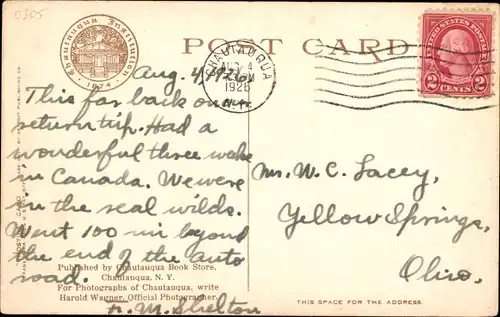 0305
Chautauqua Institution
1874
POST CARD
CHAUTAUQUA
AUG 4
1926
N.Y.
UNITED STATES POSTAGE
2 CENTS 2
Aug. 4, 1926.
This far back on our
return trip. Had a
wonderful three weeks
in Canada. We were
in the real wilds.
Went 100 mi beyond
the end of the auto
road.
F. M. Shelton
Mr. W. C. Lacey,
Yellow Springs,
Ohio.
Published by Chautauqua Book Store,
Chautauqua, N. Y.
For Photographs of Chautauqua, write
Harold Wagner, Official Photographer.
THIS SPACE FOR THE ADDRESS